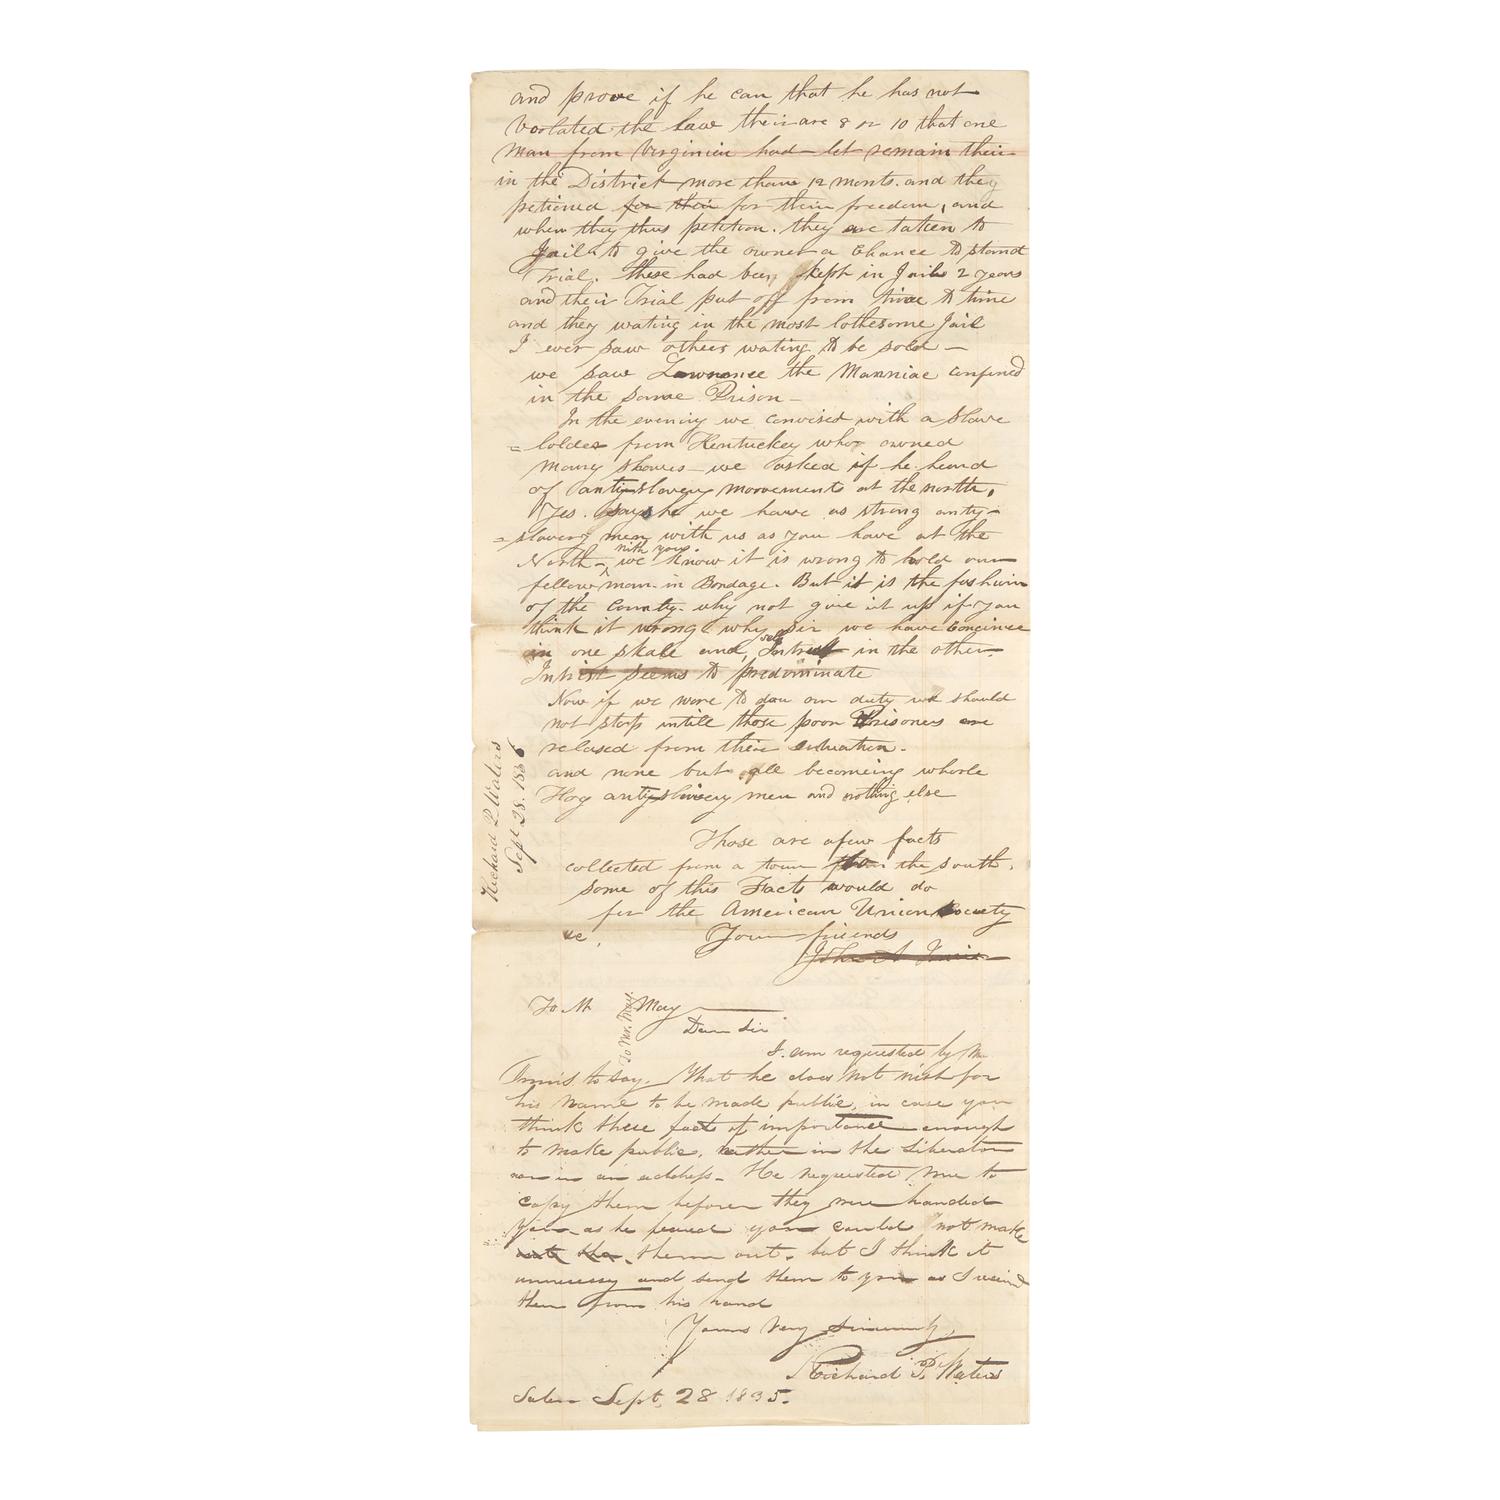 and prove if he can that he has not
Voolated the Law their are 8 or 10 that one
man from Virginien had let remain their
in the District more than 12 monts. and they
petioned for their for their freedom, and
when they thus petition. they are taken to
Jail to give the owner a Chance to stand
Trial. these had been kept in Jail 2 years
and their Trial put off from time to time
and they wating in the most lothesome Jail
I ever saw others wating to be sold —
we saw Lawrence the Manniac confined
in the same Prison —
In the evening we convised with a slave
= holder from Kentuckey who owned
many slaves — we asked if he heard
of anty slavery moovements at the north,
Yes. says he we have as strong anty-
= slavery men with us as you have at the
North — we know it is wrong to hold our
with you
fellow man in Bondage. But it is the fashion
of the County. why not give it up if you
think it wrong why Sir we have Concince
in one skale and self Intrest in the other
Intrist seems to predominate
Now if we were to dau our duty we should
not stop intill those poor Prisoners are
relased from their situation.
and none but all becoming whole
Hog anty slavery men and nothing else
Those are a few facts
collected from a tour from the south.
some of this Facts would do
for the American Union Society
&c, Your friends
John A
Richard P. Waters
Sept 28. 1836
To Mr May
To Mr. May.
Dear Sir
I am requested by Mr
Innis to say. That he does not wish for
his name to be made public, in case you
think these facts of importance enough
to make public, either in the Liberator
or in an address — He requested me to
copy them before they were handed
you as he feared you could not make
them out, but I think it
unnecessy and send them to you as I receivd
them from his hand
Yours very sincerely,
Richard P. Waters
Salem Sept, 28 1835.